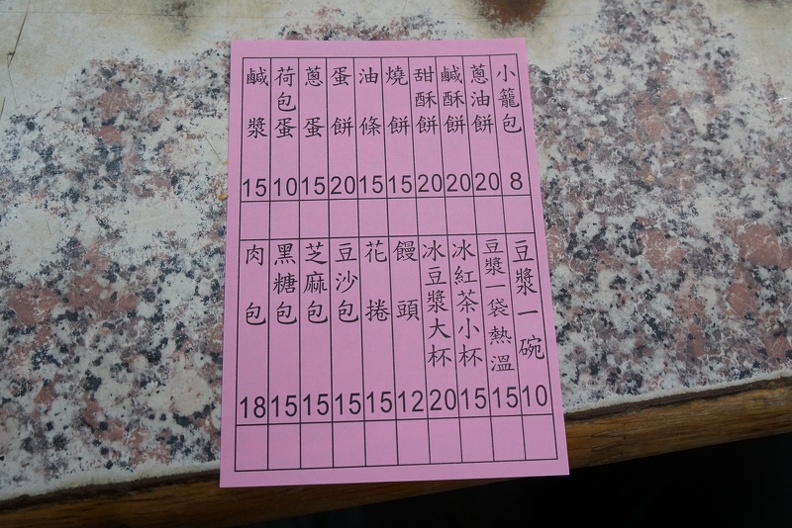 小籠包 8
蔥油餅 20
鹹酥餅 20
甜酥餅 20
燒餅 15
油條 15
蛋餅 20
蔥蛋 15
荷包蛋 10
鹹漿 15
豆漿一碗 10
豆漿一袋熱溫 15
冰紅茶小杯 15
冰豆漿大杯 20
饅頭 12
花捲 15
豆沙包 15
芝麻包 15
黑糖包 15
肉包 18